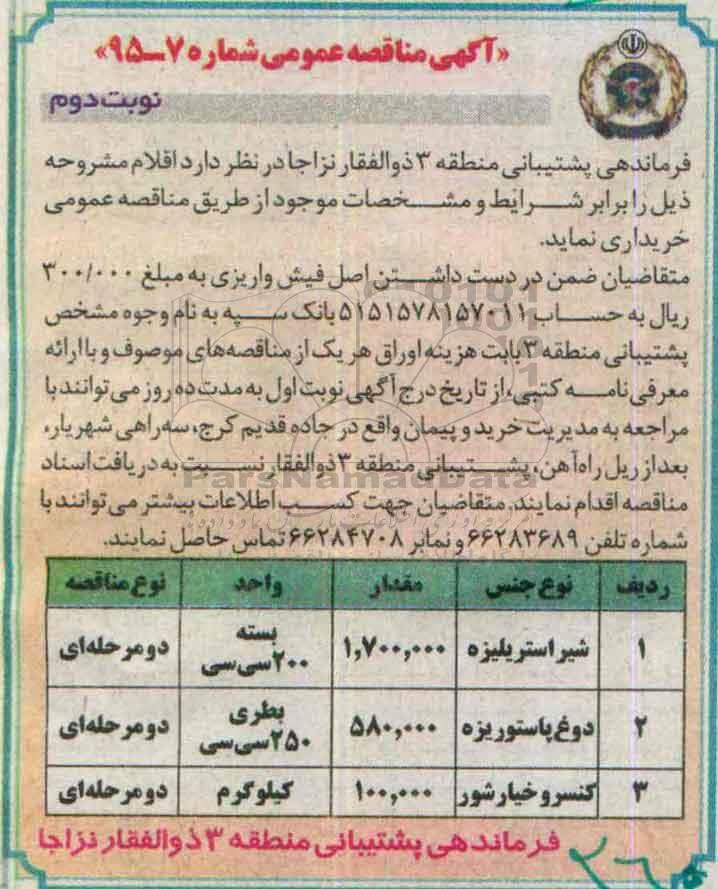 «آگهی مناقصه عمومی شماره ۷ـ۹۵»
نوبت دوم
فرماندهی پشتیبانی منطقه ۳ ذوالفقار نزاجا در نظر دارد اقلام مشروحه
ذیل را برابر شرایط و مشخصات موجود از طریق مناقصه عمومی
خریداری نماید.
متقاضیان ضمن در دست داشتن اصل فیش واریزی به مبلغ ۳۰۰/۰۰۰
ریال به حساب ۵۱۵۱۵۷۸۱۵۷۰۱۱ بانک سپه به نام وجوه مشخص
پشتیبانی منطقه ۳ بابت هزینه اوراق هر یک از مناقصه‌های موصوف و با ارائه
معرفی‌نامه کتبی، از تاریخ درج آگهی نوبت اول به مدت ده روز می‌توانند با
مراجعه به مدیریت خرید و پیمان واقع در جاده قدیم کرج، سه‌راهی شهریار،
بعد از ریل راه‌آهن، پشتیبانی منطقه ۳ ذوالفقار نسبت به دریافت اسناد
ParsNamadData
مناقصه اقدام نمایند. متقاضیان جهت کسب اطلاعات بیشتر می‌توانند با
شماره تلفن ۶۶۲۸۳۶۸۹ و نمابر ۶۶۲۸۴۷۰۸ تماس حاصل نمایند.
ردیف نوع جنس مقدار واحد نوع مناقصه
۱ شیر استریلیزه ۱,۷۰۰,۰۰۰ بسته ۲۰۰ سی‌سی دو مرحله‌ای
۲ دوغ پاستوریزه ۵۸۰,۰۰۰ بطری ۲۵۰ سی‌سی دو مرحله‌ای
۳ کنسرو خیارشور ۱۰۰,۰۰۰ کیلوگرم دو مرحله‌ای
فرماندهی پشتیبانی منطقه ۳ ذوالفقار نزاجا